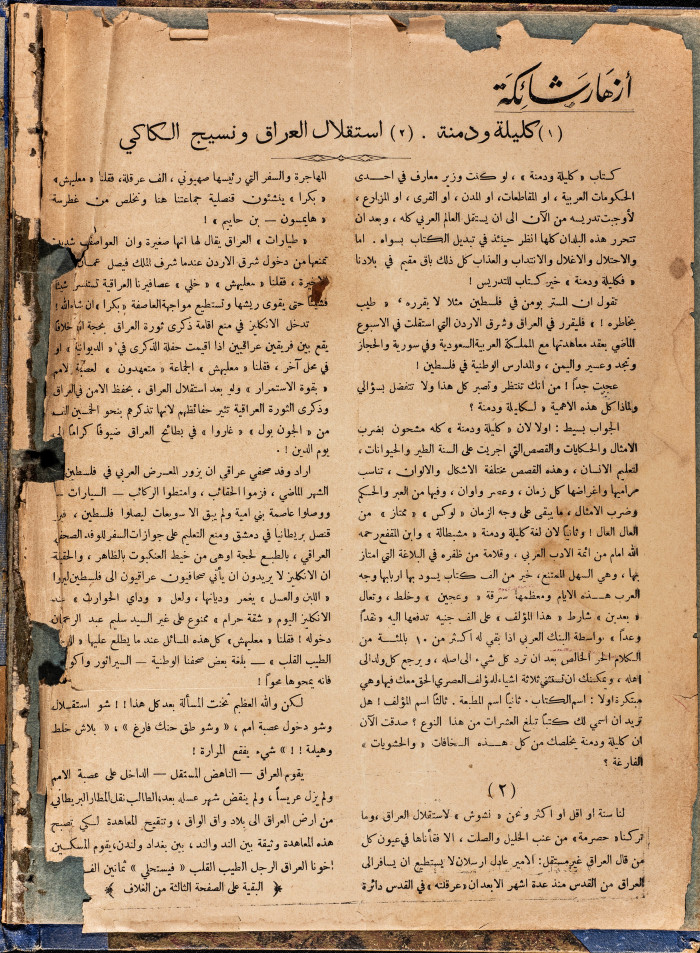 أزهار شائكة
(١) كليلة ودمنة . (٢) استقلال العراق ونسيج الكاكي
كتاب « كليلة ودمنة » ، لو كنت وزير معارف في احدى
الحكومات العربية ، او المقاطعات ، او المدن ، او القرى ، او المزارع ،
لأوجبت تدريسه من الآن الى ان يستقل العالم العربي كله ، وبعد ان
تتحرر هذه البلدان كلها انظر حينئذ في تبديل الكتاب بسواه . اما
والاحتلال والاغلال والانتداب والعذاب كل ذلك باق مقيم في بلادنا
« فكليلة ودمنة » خير كتاب للتدريس !
تقول ان المستر بومن في فلسطين مثلا لا يقرره ، طيب
بخاطره ! فليقرر في العراق وشرق الاردن التي استقلت في الاسبوع
الماضي بعقد معاهدتها مع المملكة العربية السعودية وفي سورية والحجاز
ونجد وعسير واليمن ، والمدارس الوطنية في فلسطين !
عجبت جداً ! من انك تنتظر وتصبر كل هذا ولا تتفضل بسؤالي
ولماذا كل هذه الاهمية « لكليلة ودمنة ؟
الجواب بسيط : اولا لان « كليلة ودمنة » كله مشحون بضرب
الامثال والحكايات والقصص التي اجريت على السنة الطير والحيوانات ،
لتعليم الانسان ، وهذه القصص مختلفة الاشكال والالوان ، تناسب
مراميها واغراضها كل زمان ، وعصر واوان ، وفيها من العبر والحكم
وضرب الامثال ، ما يبقى على وجه الزمان « لوكس » « ممتاز » من
العال العال ! وثانياً لان لغة كليلة ودمنة « مشبطالة » وابن المقفع رحمه
الله امام من ائمة الادب العربي ، وقلامة من ظفره في البلاغة التي امتاز
بها ، وهي السهل الممتنع ، خير من الف كتاب يسود بها اربابها وجه
العرب هذه الايام ومعظمها سرقة « وعجين » وخلط ، وتعال
« بعدين » شارط « هذا المؤلف » على الف جنيه تدفعها اليه « نقداً
وعداً » بواسطة البنك العربي اذا بقي له اكثر من ١٠ بالمئة من
الكلام الحر الخالص بعد ان ترد كل شيء الى اصله ، ويرجع كل ولد الى
اهله ، ويمكنك ان تستثني ثلاثة اشياء للمؤلف العصري الحق معك فيها وهي
مبتكرة اولا : اسم الكتاب . ثانياً اسم المطبعة . ثالثاً اسم المؤلف ! هل
تريد ان اسمي لك كتباً تبلغ العشرات من هذا النوع ؟ صدقت الآن
ان كليلة ودمنة يخلصك من كل هذه السخافات « والحشويات »
الفارغة ؟
( ٢ )
لنا سنة او اقل او اكثر ونحن « نشوش » لاستقلال العراق ، وما
تركنا « حصرمة » من عنب الخليل والصلت ، الا فقأناها في عيون كل
من قال العراق غير مستقل : الامير عادل ارسلان لا يستطيع ان يسافر الى
العراق من القدس منذ عدة اشهر الا بعد ان « عرقلته » في القدس دائرة
المهاجرة والسفر التي رئيسها صهيوني ، الف عرقلة ، فقلنا « معليهش »
« بكرا » ينشئون قنصلية جماعتنا هنا ونخلص من غطرسة
« هايمسون – بن حاييم » !
« طيارات » العراق يقال لها انها صغيرة وان العواصف شديدة
تمنعها من دخول شرق الاردن عندما شرف الملك فيصل عمان
الاخيرة ، فقلنا « معليهش » « خلي » عصافيرنا العراقية
فشيئاً حتى يقوى ريشها وتستطيع مواجهة العاصفة « بكرا » ان شاء الله !
تدخل الانكليز في منع اقامة ذكرى ثورة العراق بحجة ان خلافا
يقع بين فريقين عراقيين اذا اقيمت حفلة الذكرى في « الديوانية » او
في محل آخر ، فقلنا « معليهش » الجماعة « متعهدون » لعصبة الامم
« بقوة الاستمرار » ولو بعد استقلال العراق ، بحفظ الامن في العراق
وذكرى الثورة العراقية تثير حفائظهم لانها تذكرهم بنحو الخمسين الف
من « الجون بول » « غاروا » في بطائح العراق ضيوفاً كراماً الى
يوم الدين !
اراد وفد صحفي عراقي ان يزور المعرض العربي في فلسطين
الشهر الماضي ، فزموا الحقائب ، وامتطوا الركائب – السيارات –
ووصلوا عاصمة بني امية ولم يبق الا سويعات ليصلوا فلسطين ،
قنصل بريطانيا في دمشق ومنع التعليم على جوازات السفر للوفد الصحفي
العراقي ، بالطبع لحجة اوهى من خيط العنكبوت بالظاهر ، والحقيقة
ان الانكليز لا يريدون ان يأتي صحافيون عراقيون الى فلسطين ليروا
« اللبن والعسل » يغمر وديانها ، ولعل « وداي الحوارث » عند
الانكليز اليوم « شقة حرام » ممنوع على غير السيد سليم عبد الرحمان
دخوله ! فقلنا « معليهش » كل هذه المسائل عند ما يطلع عليها «
الطيب القلب » – بلغة بعض صحفنا الوطنية – السيراثور
فانه يمحوها محواً !
لكن والله العظيم تخنت المسألة بعد كل هذا ! ! شو استقلال
وشو دخول عصبة امم ، « وشو طق حنك فارغ » ، « بلاش خلط
وهيلمة ! ! » شيء يفقع المرارة !
يقوم العراق – الناهض المستقل – الداخل على عصبة الامم
ولم يزل عريساً ، ولم ينقض شهر عسله بعد ، الطالب نقل المطار البريطاني
من ارض العراق الى بلاد واق الواق ، وتنقيح المعاهدة لكي تصبح
هذه المعاهدة وثيقة بين الند والند ، بين بغداد ولندن ، يقوم المسكين
اخونا العراق الرجل الطيب القلب « فيستحلي » ثمانين الف
البقية على الصفحة الثالثة من الغلاف